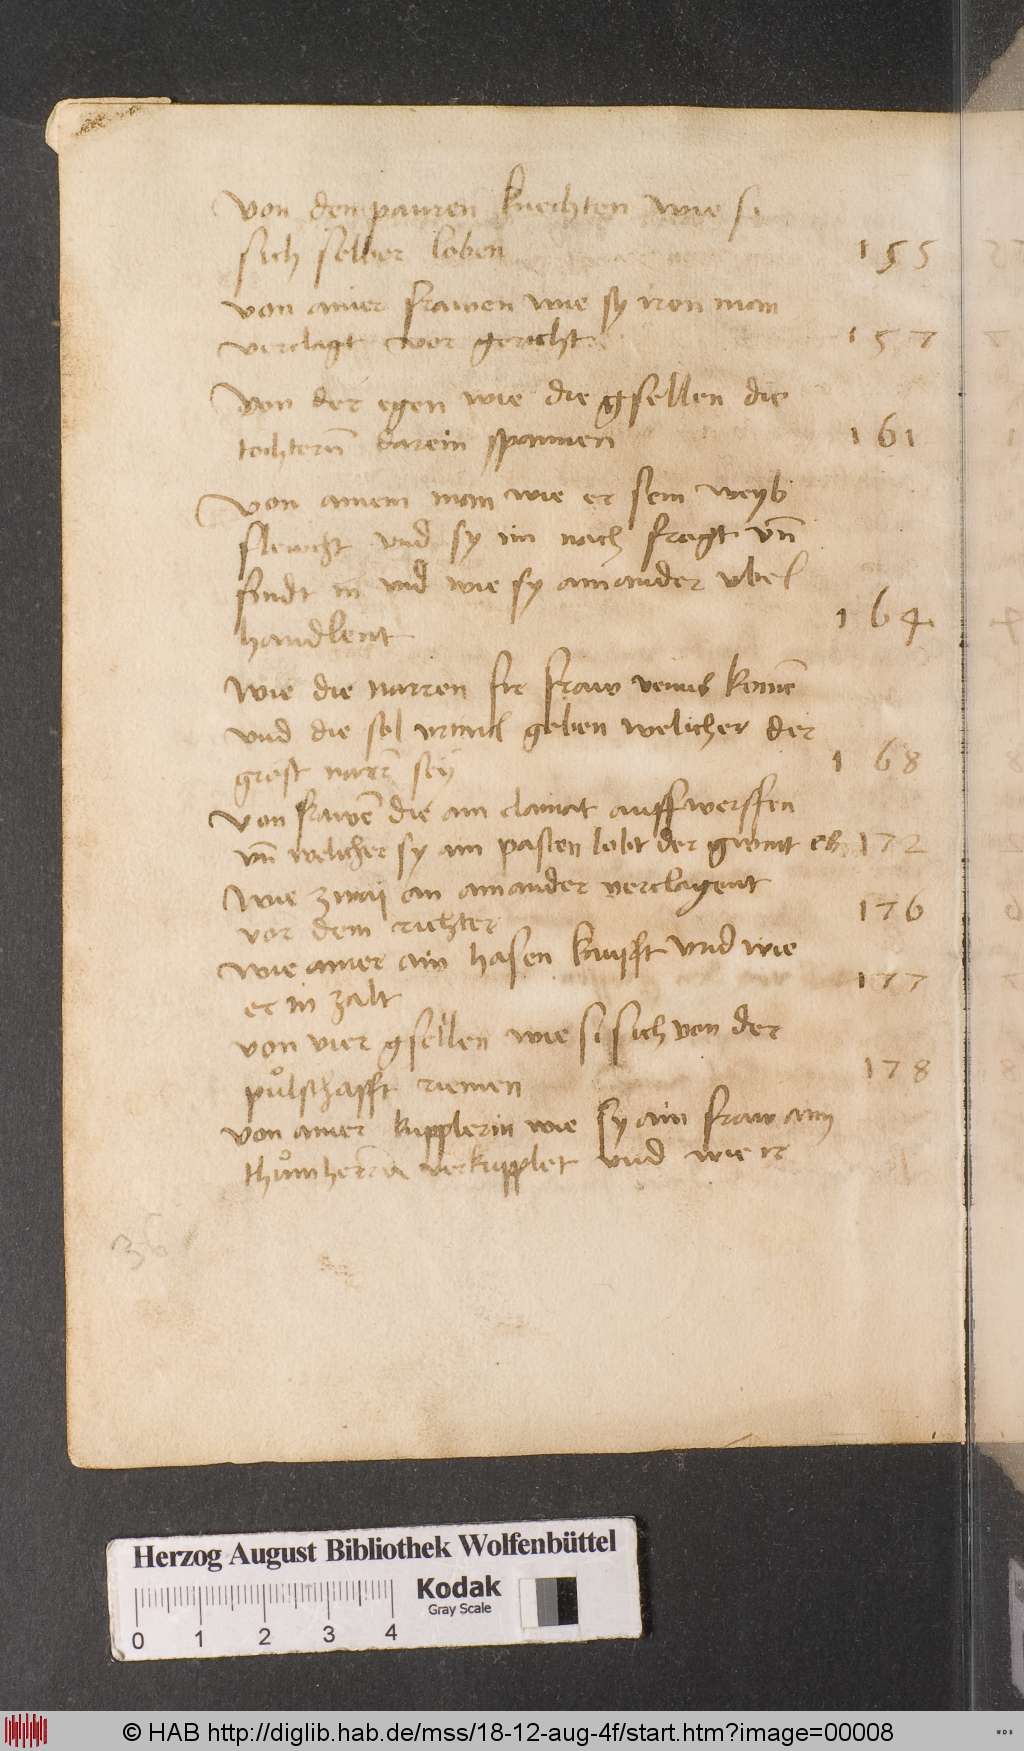 Von dem pauren knechten wie si
sich selber loben 155
von ainer frawen wie sy iren man
verclagt vor gericht 157
Von der egen wie die gsellen die
tochtern̄ darein spannen 161
Von ainem man wie er sein weyb
fleucht und sy im nach fragt vn̄
findt in und wie sy ainander vbel
handlent 164
Wie die narren fir fraw venus komē
und die sol urtail geben welicher der
grost narr sey 168
Von frawē die ain auffwerffen
vn̄ welicher sy am pasten lobt der gwint es 172
Wie zwaij an ainander verclagent
vor dem richter 176
Wie ainer ain hasen kaufft und wie
er in zalt 177
von vier gsellen wie si sich von der
půlschafft riemen 178
von ainer kupplerin wie sy ain fraw aim
thůmherren verkupplet und wie ir
36
Herzog August Bibliothek Wolfenbüttel
Kodak
Gray Scale
0 1 2 3 4
© HAB http://diglib.hab.de/mss/18-12-aug-4f/start.htm?image=00008